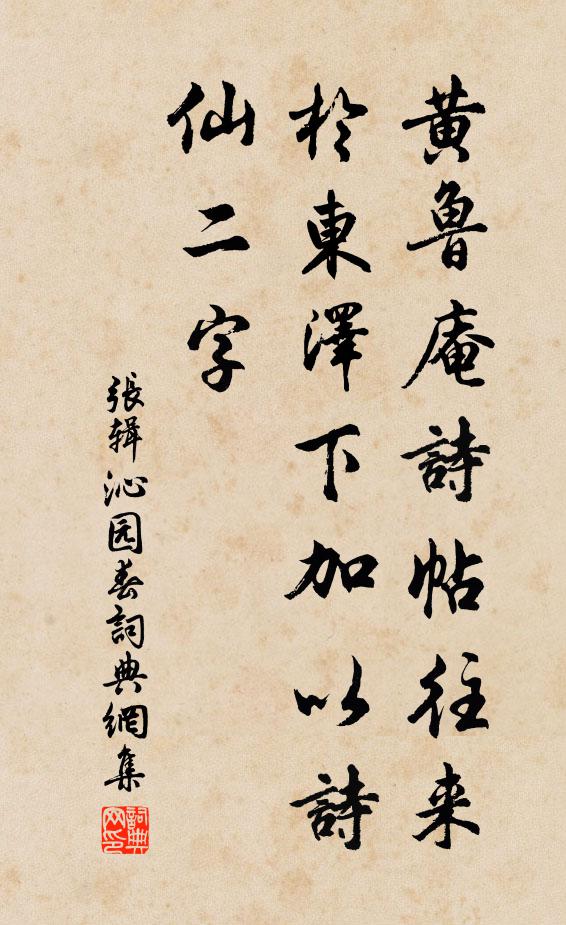 黄魯庵詩帖往来
於東澤下加以詩
仙二字
張辑沁园春詞典網集
詞典网印